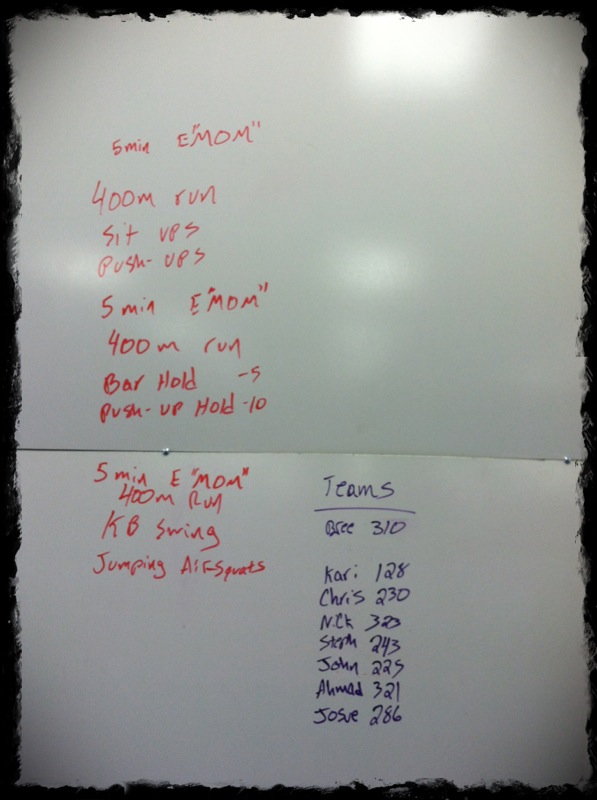 5min E"MOM"
400m run
Sit ups
Push-ups
5 min E"MOM"
400m run
Bar Hold -5
Push-up Hold -10
5min E"MOM"
400m Run
KB Swing
Jumping Air Squats
Teams
Bree 310
Kari 128
Chris 230
Nick 323
Steph 243
John 225
Ahmad 321
Josue 286